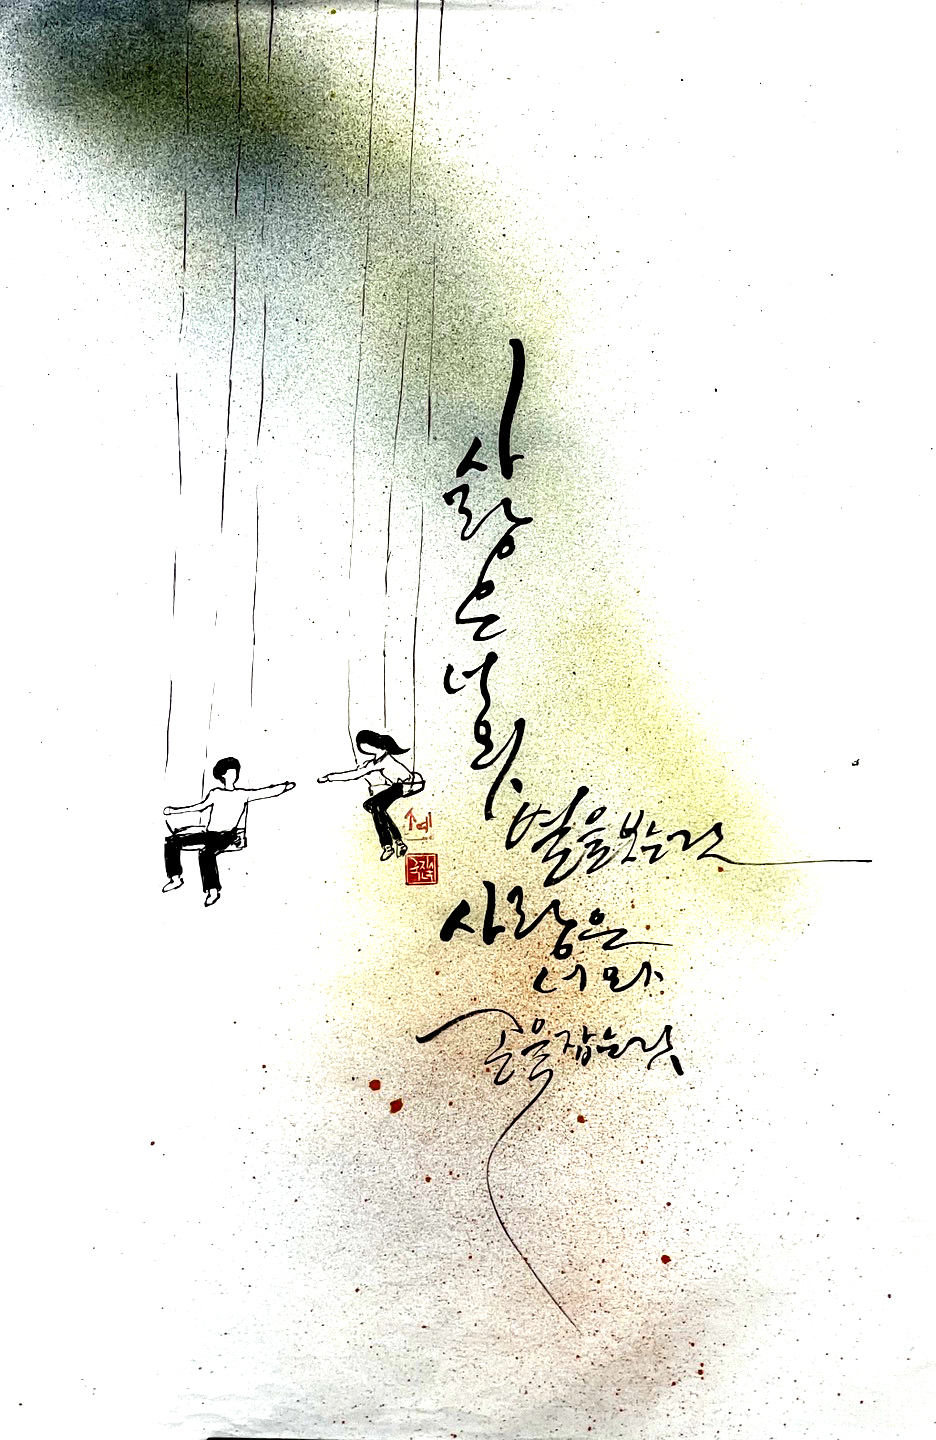 사랑은 너와
별을 보는 것
사랑은
너와
손을 잡는 것
소예